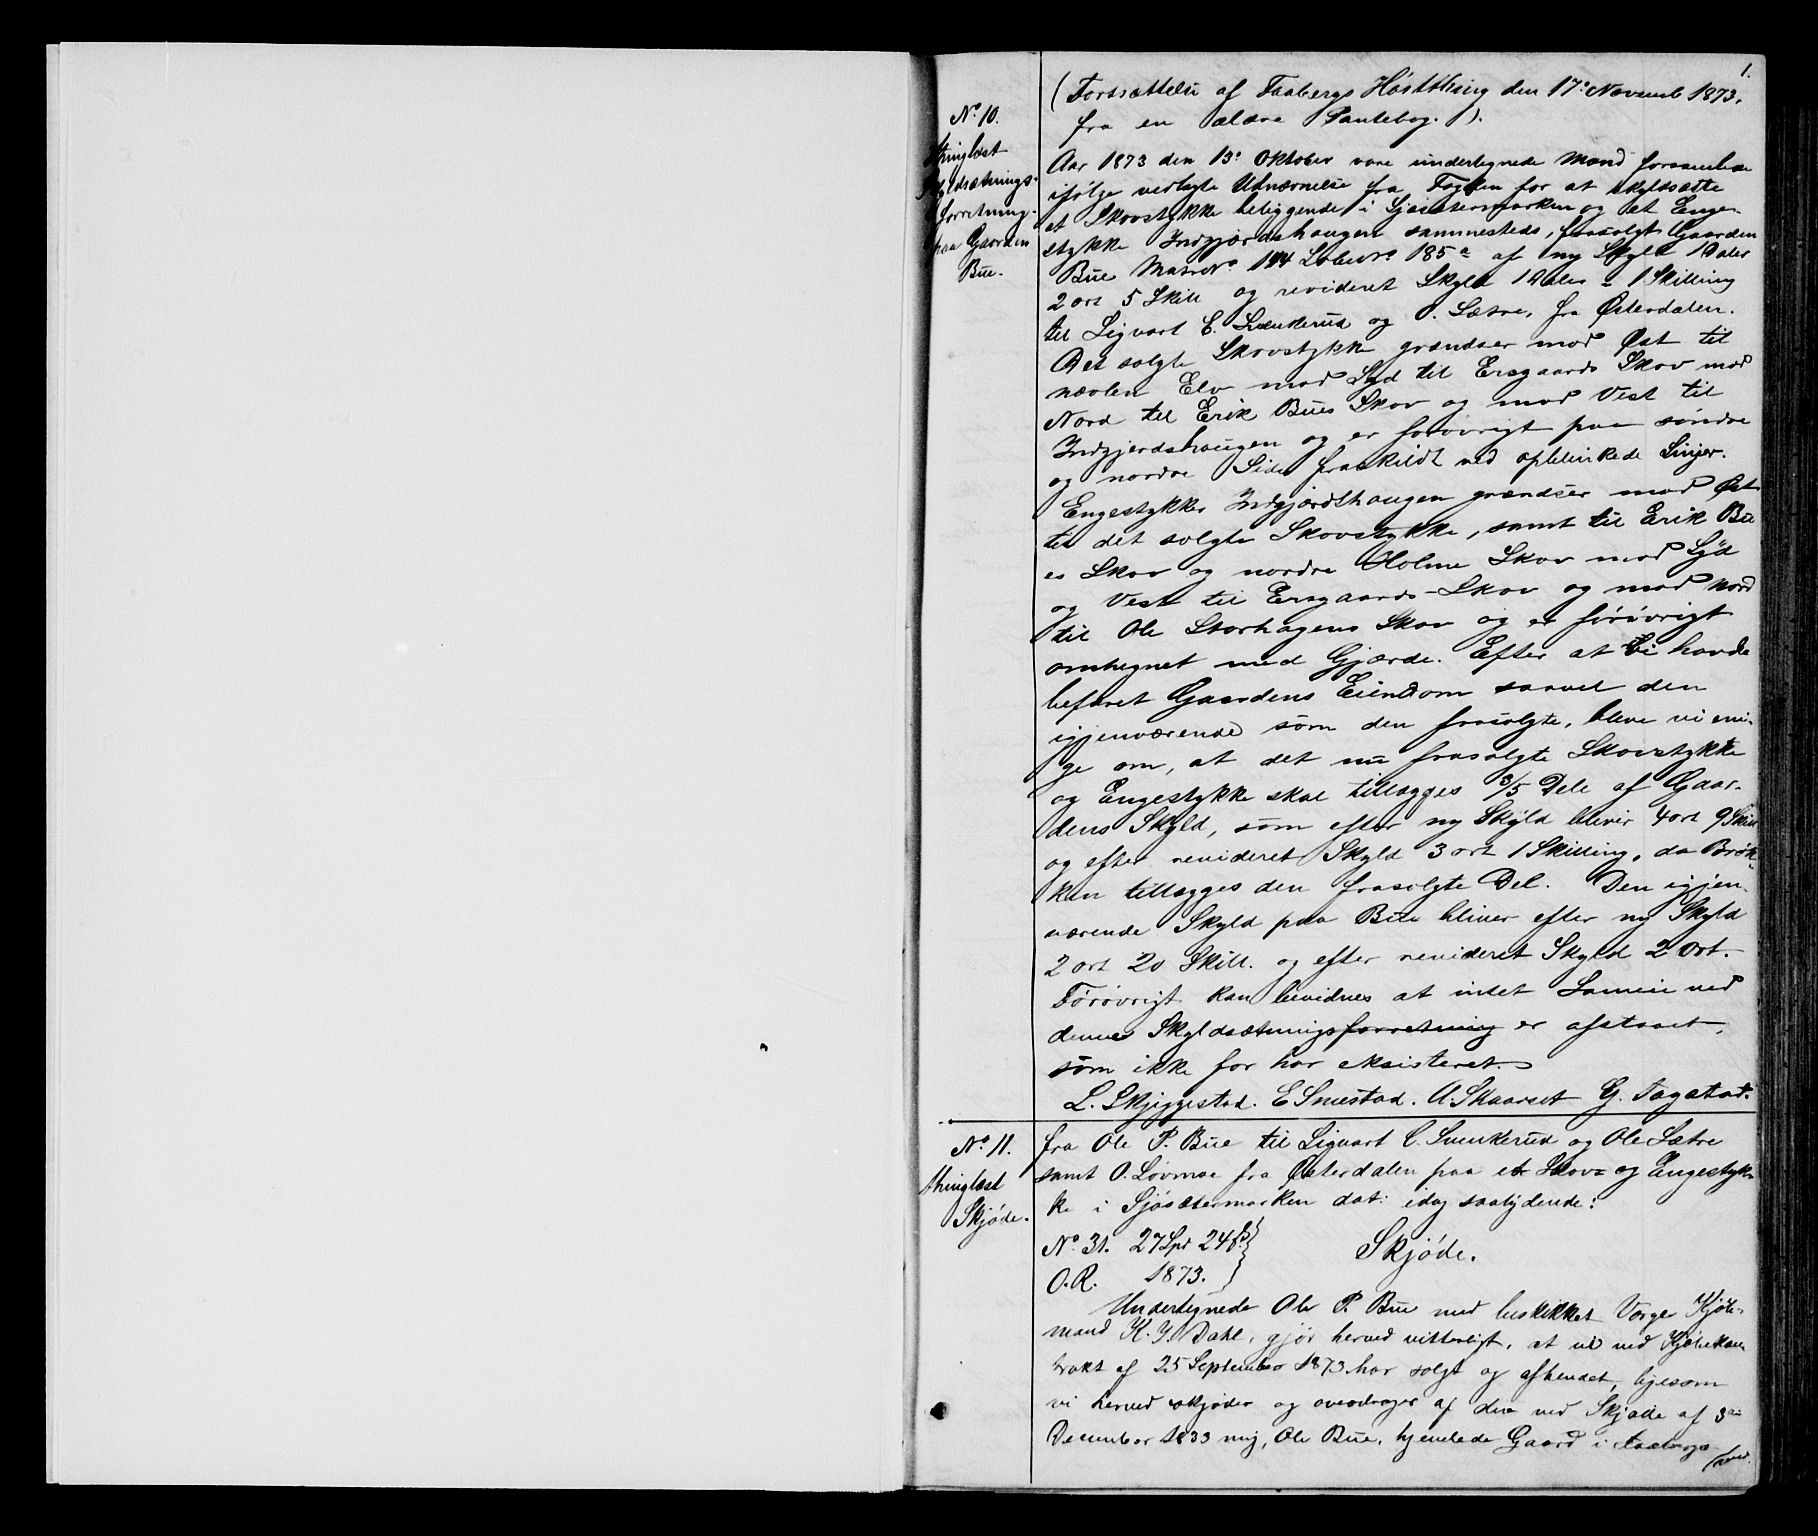 1.
(Fortsættelse af Faabergs Høstthing den 17de Novemb 1873,
fra en ældre Pantebog.)
No 10.
thinglæst
Skyldsætnings-
forretning
paa Gaarden
Bue.
Aar 1873 den 13de Oktober vare undertegnede Mænd forsamlede
ifølge vedlagte Udnævnelse fra Fogden for at skyldsætte
et Skovstykke beliggende i Sjøsætermarken og et Enge-
stykke Indgjærdshaugen sammesteds, frasolgt Gaarden
Bue Matr No 144 Løbe No 185a af ny Skyld 1 Daler
2 ort 5 Skill og revideret Skyld 1 Daler - 1 Skilling
til Sigvart E. Svenkerud og O. Sætre, fra Østerdalen.
Det solgte Skovstykke grændser mod Øst til
Elv mod Syd til Ersgaards Skov mod
Nord til Erik Bues Skov og mod Vest til
Indgjerdshaugen og er forøvrigt paa søndre
og nordre Side fraskildt ved opblinkede Linjer.
Engestykket Indgjærdshaugen grændser mod Øst
til det solgte Skovstykke, samt til Erik Bu
es Skov og nordre Holme Skov mod Syd
og Vest til Ersgaards-Skov og mod Nord
til Ole Storhagens Skov og er førøvrigt
omhegnet med Gjærde. Efter at vi havde
befaret Gaardens Eiendom saavel den
igjenværende som den frasolgte, bleve vi eni-
ge om, at det nu frasolgte Skovstykke
og Engestykke skal tillægges 3/5 Dele af Gaar-
dens Skyld, som efter ny Skyld bliver 4 ort 9 Skill
og efter revideret Skyld 3 ort 1 Skilling, da Brøk-
ken tillægges den frasolgte Del. Den igjen-
værende Skyld paa Bue bliver efter ny Skyld
2 ort 20 Skill. og efter revideret Skyld 2 Ort.
Førøvrigt kan bevidnes at intet Sameie ved
denne Skyldsætningsforretning er afstaaet,
som ikke før har eksisteret.
L. Skjeggestad. E Smestad. A. Skaarset G. Fagstad.
No 11.
thinglæst
Skjøde.
fra Ole P. Bue til Sigvart E. Svenkerud og Ole Sætre
samt O. Løvmoe fra Østerdalen paa et Skov- og Engestyk-
ke i Sjøsætermarken dat: idag saalydende:
No 31. 27 Spd 24 ß
O.R. 1873.
Skjøde.
Undertegnede Ole P. Bue med beskikket Værge Kjøb-
mand K. J. Dahl, gjør herved vitterligt, at vi ved Kjøbekon
trakt af 25 September 1873 har solgt og afhendet, ligesom
vi herved skjøder og overdrager af den ved Skjøde af 3die
December 1833 mig, Ole Bue, hjemlede Gaard i Faabergs